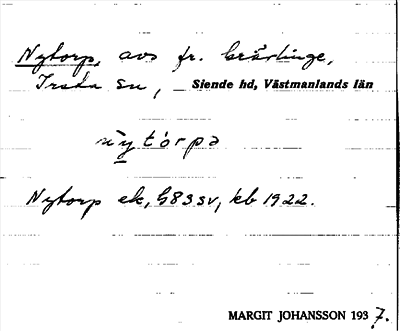 Nytorp, avs fr. Grällinge,
Irsta sn, Siende hd, Västmanlands län
nỳtórpa
Nytorp ek, G83 sv, kb 1922.
MARGIT JOHANSSON 1937.